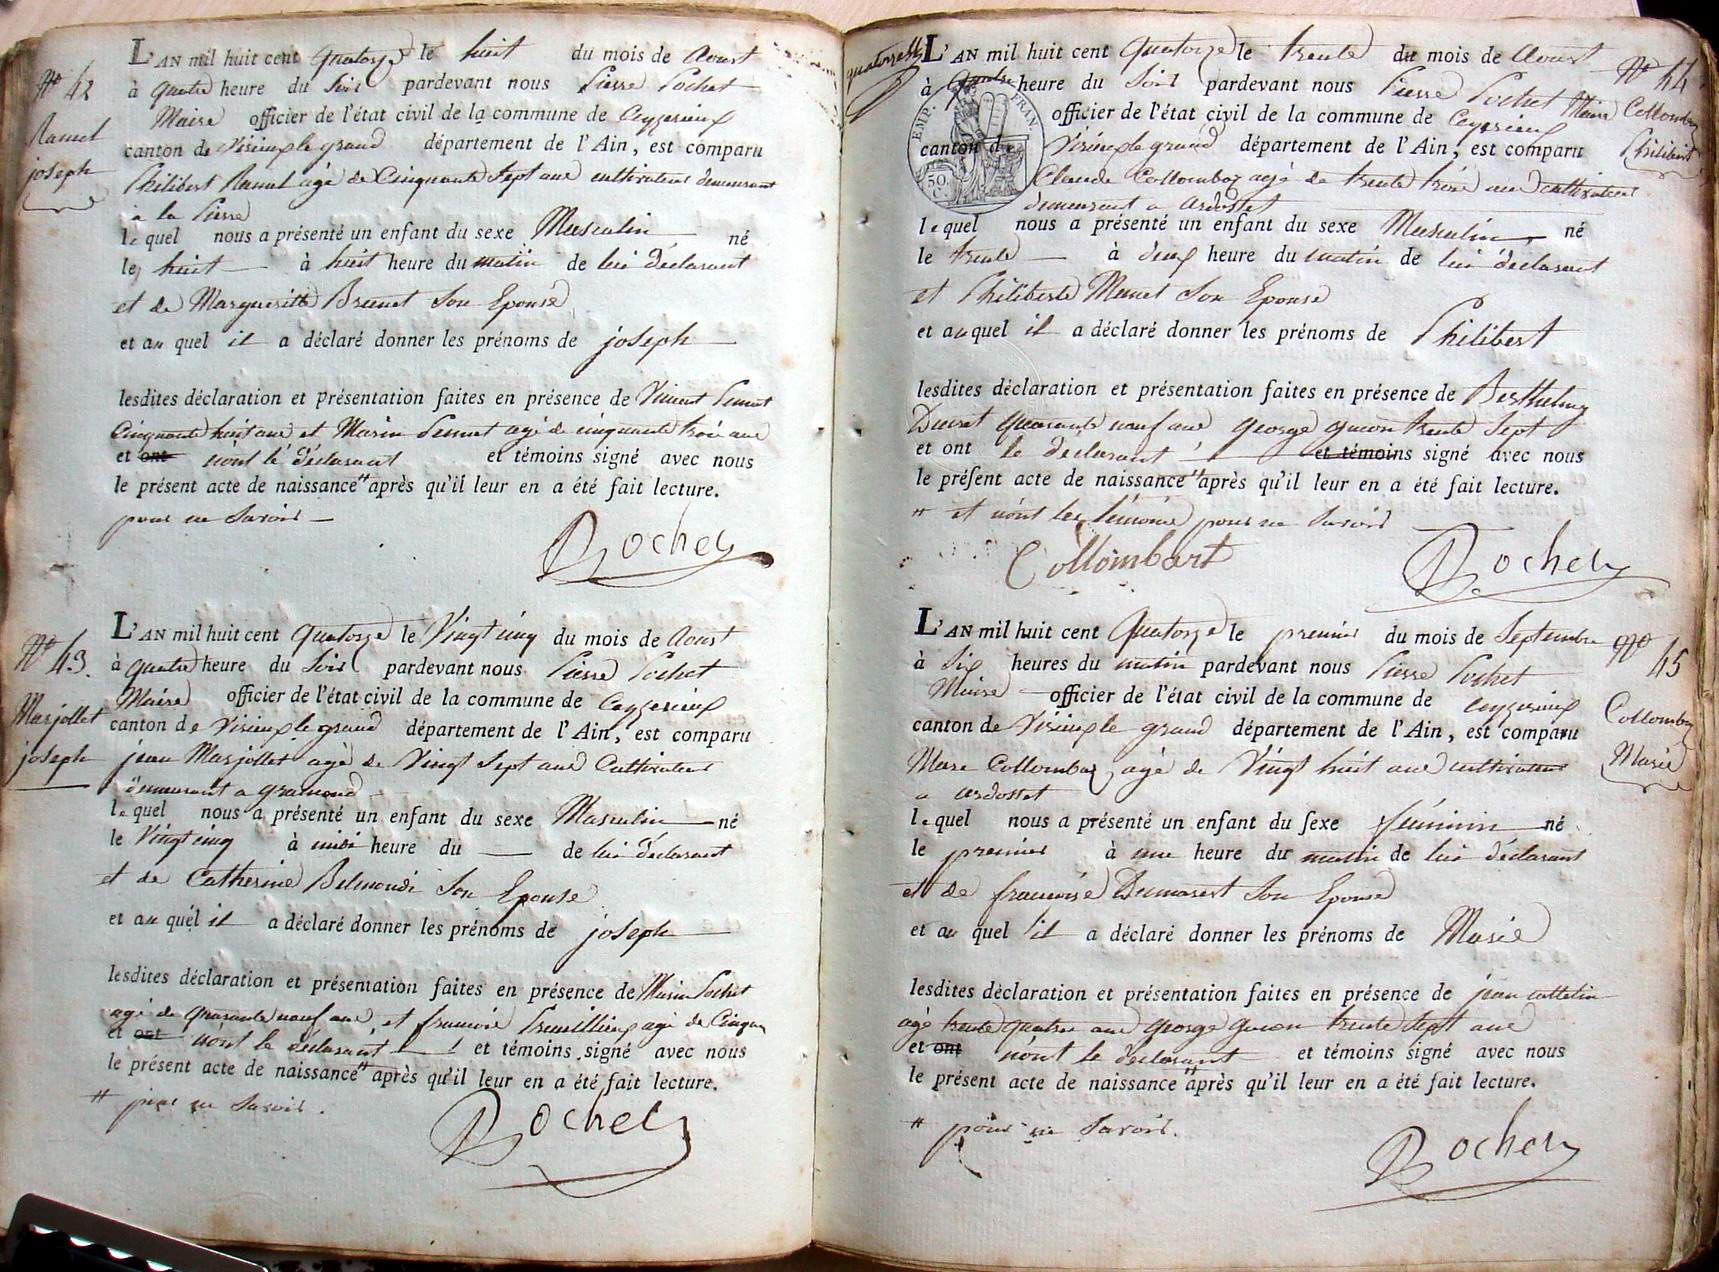 N° 42
Ramel
joseph
L'AN mil huit cent quatorze le huit du mois de Aoust
à quatre heure du Soir pardevant nous Pierre Pochet
Maire officier de l'état civil de la commune de Ceyzerieux
canton de Virieux le grand département de l'Ain, est comparu
Philibert Ramel agé de Cinquante Sept ans cultivateur demeurant
a la Pierre
lequel nous a présenté un enfant du sexe Masculin né
le huit à huit heure du matin de lui déclarant
et de Marguerite Brunet Son Epouse
et au quel il a déclaré donner les prénoms de joseph
lesdites déclaration et présentation faites en présence de Vincent
Cinquante huit ans et Marin agé de cinquante trois ans
et ont n'ont le déclarant et témoins signé avec nous
le présent acte de naissance # après qu'il leur en a été fait lecture.
pour ne Savoir
Pochet
N° 43.
Marjollet
joseph
L'AN mil huit cent quatorze le Vingt cinq du mois de Aoust
à quatre heure du Soir pardevant nous Pierre Pochet
Maire officier de l'état civil de la commune de Ceyzerieux
canton de Virieux le grand département de l'Ain, est comparu
jean Marjollet agé de Vingt Sept ans Cultivateur
demeurant a gramond
lequel nous a présenté un enfant du sexe Masculin né
le Vingt cinq à midi heure du de lui déclarant
et de Catherine Belmondi Son Epouse
et au quel il a déclaré donner les prénoms de joseph
lesdites déclaration et présentation faites en présence de Marin Pochet
agé de quarante neuf ans et francois agé de Cinqua
et ont n'ont le déclarant et témoins signé avec nous
le présent acte de naissance # après qu'il leur en a été fait lecture.
# pour ne Savoir.
Pochet
N° 44
Collomba
Philibert
L'AN mil huit cent quatorze le trente du mois de Aoust
à quatre heure du Soir pardevant nous Pierre Pochet Maire
officier de l'état civil de la commune de Ceyzerieux
canton de Virieux le grand département de l'Ain, est comparu
EMP. FRAN.
50.
Claude Collombaz agé de trente trois ans cultivateur
demeurant a ardosset
lequel nous a présenté un enfant du sexe Masculin né
le trente à deux heure du matin de lui déclarant
et Philiberte Monet Son Epouse
et auquel il a déclaré donner les prénoms de Philibert
lesdites déclaration et présentation faites en présence de Berthelmy
Ducret quarante neuf ans george guion trente Sept
et ont le déclarant et témoins signé avec nous
le présent acte de naissance # après qu'il leur en a été fait lecture.
# et n'ont les témoins pour ne Savoir
Collombart
Pochet
N° 45
Collombaz
Marie
L'AN mil huit cent quatorze le premier du mois de Septembre
à Six heures du matin pardevant nous Pierre Pochet
Maire officier de l'état civil de la commune de ceyzerieux
canton de Virieux le grand département de l'Ain, est comparu
Marc Collombaz agé de Vingt huit ans cultivateur
a ardosset
lequel nous a présenté un enfant du sexe féminin né
le premier à une heure du matin de lui déclarant
et de francoise Dumarest Son Epouse
et au quel il a déclaré donner les prénoms de Marie
lesdites déclaration et présentation faites en présence de jean cattelin
agé trente quatre ans george guion trente Sept ans
et ont n'ont le declarant et témoins signé avec nous
le présent acte de naissance # après qu'il leur en a été fait lecture.
# pour ne Savoir.
Pochet